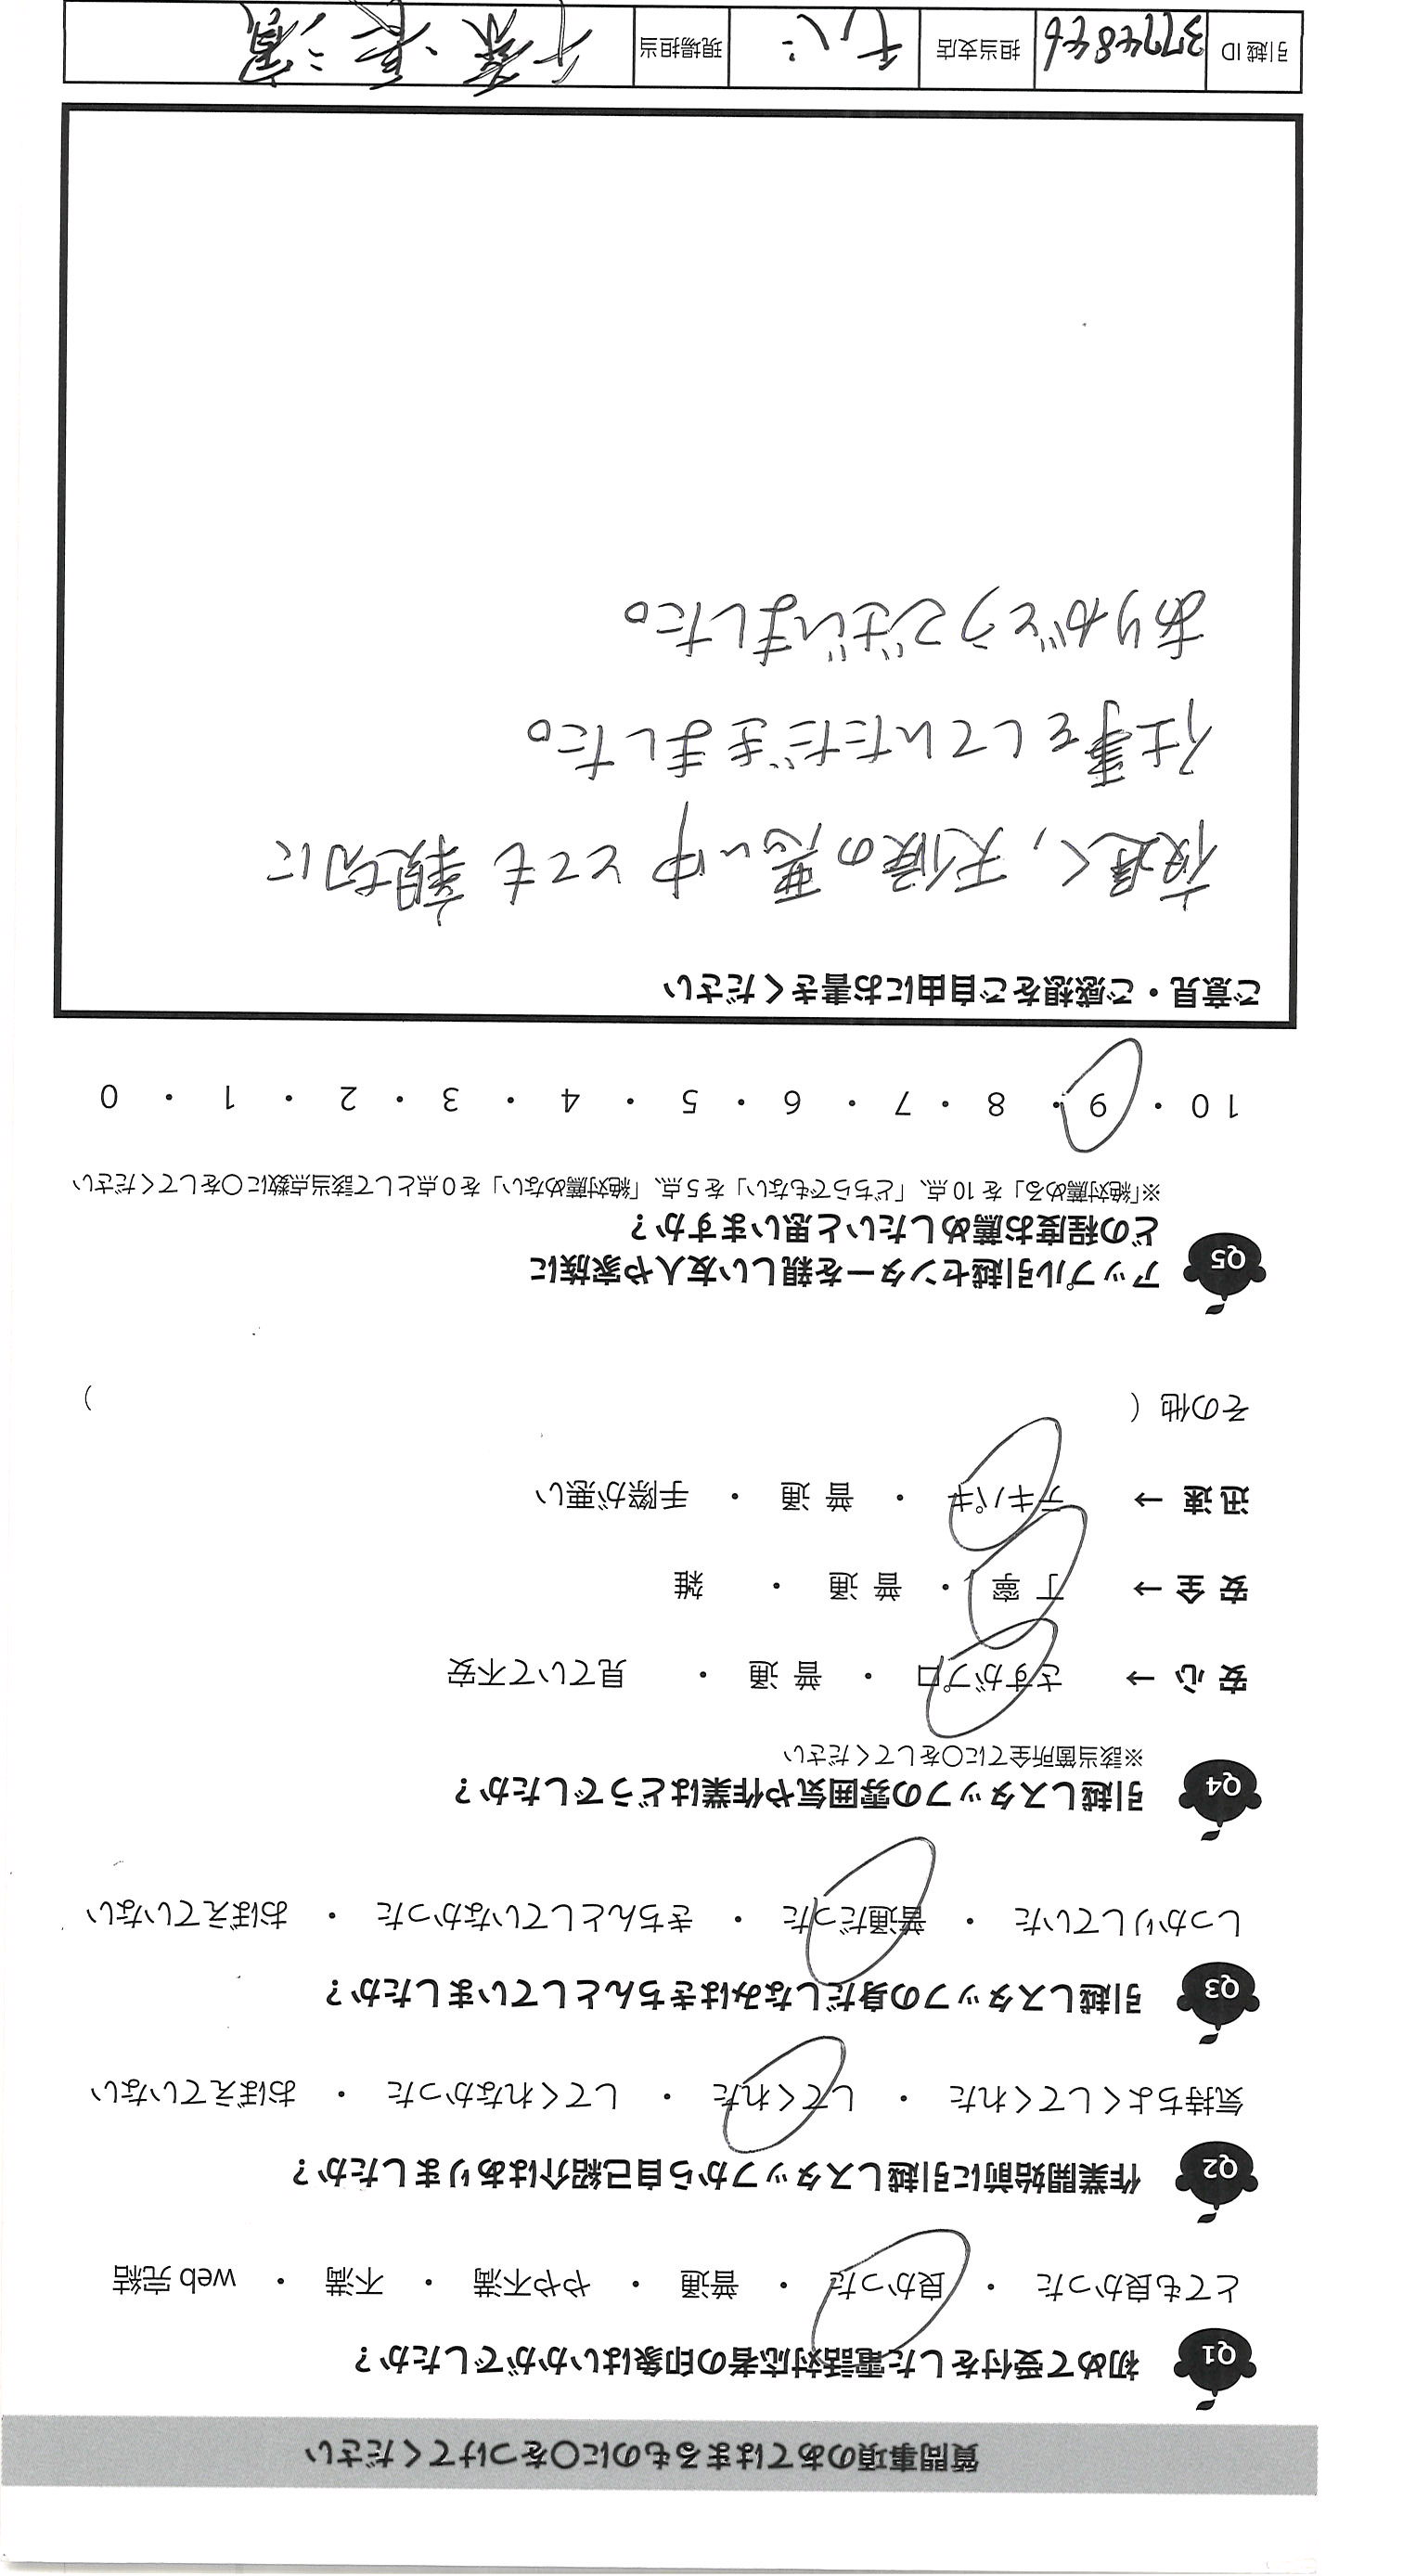 質問事項のあてはまるものに〇をつけてください
Q1 初めて受付をした電話対応者の印象はいかがでしたか？
とても良かった ・ 良かった ・ 普通 ・ やや不満 ・ 不満 ・ web 完結
Q2 作業開始前に引越しスタッフから自己紹介はありましたか？
気持ちよくしてくれた ・ してくれた ・ してくれなかった ・ おぼえていない
Q3 引越しスタッフの身だしなみはきちんとしていましたか？
しっかりしていた ・ 普通だった ・ きちんとしていなかった ・ おぼえていない
Q4 引越しスタッフの雰囲気や作業はどうでしたか？
※該当箇所全てに〇をしてください
安 心 → さすがプロ ・ 普 通 ・ 見ていて不安
安 全 → 丁 寧 ・ 普 通 ・ 雑
迅 速 → テキパキ ・ 普 通 ・ 手際が悪い
その他（ ）
Q5 アップル引越センターを親しい友人や家族に
どの程度お薦めしたいと思いますか？
※「絶対薦める」を 10 点、「どちらでもない」を 5 点、「絶対薦めない」を 0 点として該当点数に〇をしてください
10 ・ 9 ・ 8 ・ 7 ・ 6 ・ 5 ・ 4 ・ 3 ・ 2 ・ 1 ・ 0
ご意見・ご感想をご自由にお書きください
夜遅く, 天候の悪い中 とても 親切に
仕事をしていただきました。
ありがとうございました。
引越 ID 担当支店 現場担当